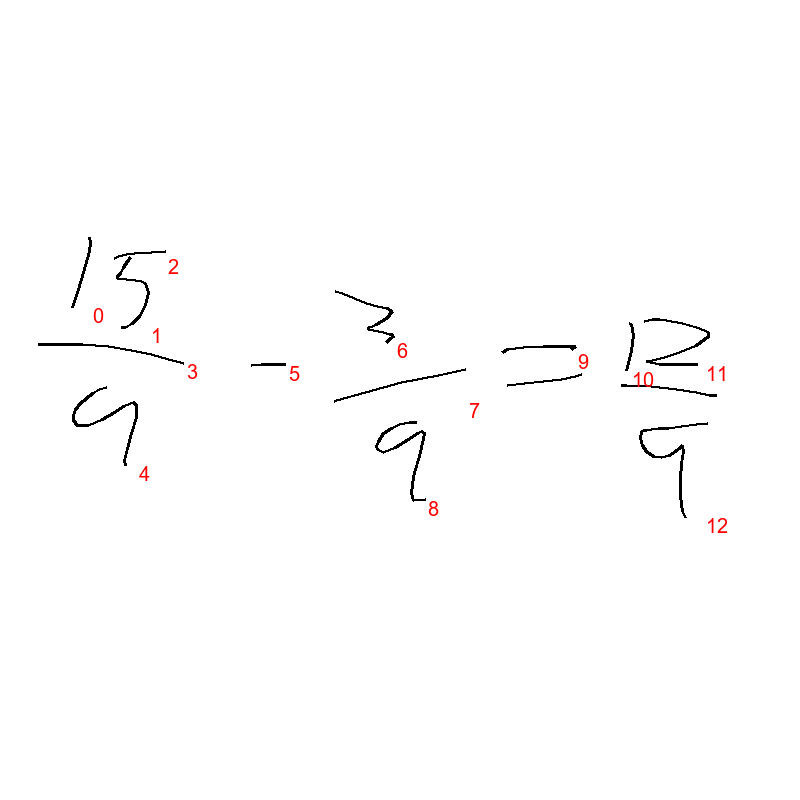 15/9 - 3/9 = 12/9
0 1 2 3 4 5 6 7 8 9 10 11 12